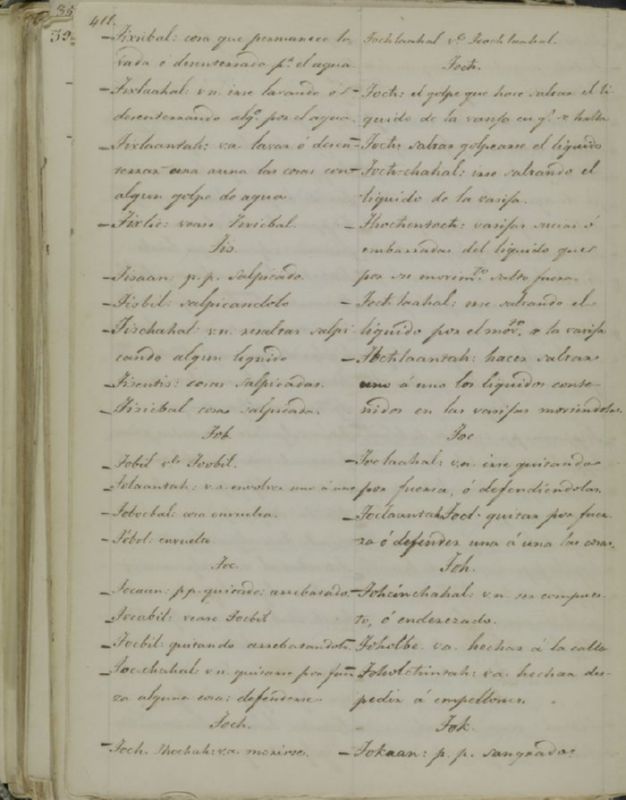 411.
Tixicbal: cosa que permanece la-
vada ó desenterrada pr. el agua.
Tixlaahal: v.n. irse lavando ó
desenterrando algo. por el agua.
Tixlaantah: v.a. lavar ó desen-
terrar una á una las cosas con
algun golpe de agua.
Tixlic: vease Tixicbal.
Tis.
Tisaan: p. p. salpicado.
Tisbil: salpicandolo
Tischahal: v.n. resultar salpi-
cando algun liquido
Tisentis: cosas salpicadas.
Tisicbal cosa salpicada.
Tob.
Tobil Toobil.
Tolaantah: v.a. envolver una á una
Tobocbal: cosa envuelta.
Tóbol: envuelto
Toc.
Tocaan: p.p. quitado: arrebatado.
Tocabil: vease Tocbil
Tocbil: quitando arrebatandolo.
Toc-chahal v.n. quitarse por fuer-
za alguna cosa: defenderse.
Toch.
Toch. Thochah: v.a. morirse.
Tochlaahal Tooch laahal.
Toch.
Toch: el golpe que hace saltar el li-
quido de la vasija en qe. se halla
Toch: saltar golpearse el liquido
Toch-chahal: irse saltando el
liquido de la vasija.
Thochentoch: vasijas sucias ó
embarradas del liquido que
por su movimto. salta fuera.
Toch laahal: irse saltando el
liquido por el movto. de la vasija
Tochlaantah: hacer saltar
uno á uno los liquidos conte-
nidos en las vasijas moviendolas.
Toc
Toclaahal: v.n. irse quitando
por fuerza, ó defendiendolas.
Toclaantah Tocl. quitar por fuer-
za ó defender una á una las cosas.
Toh.
Tohcinchahal: v.n. ser compues-
to, ó enderezado.
Toholbe. v.a. hechar á la calle
Toholchintah: v.a. hechar des-
pedir á empellones.
Tok
Tokaan: p. p. sangrado: